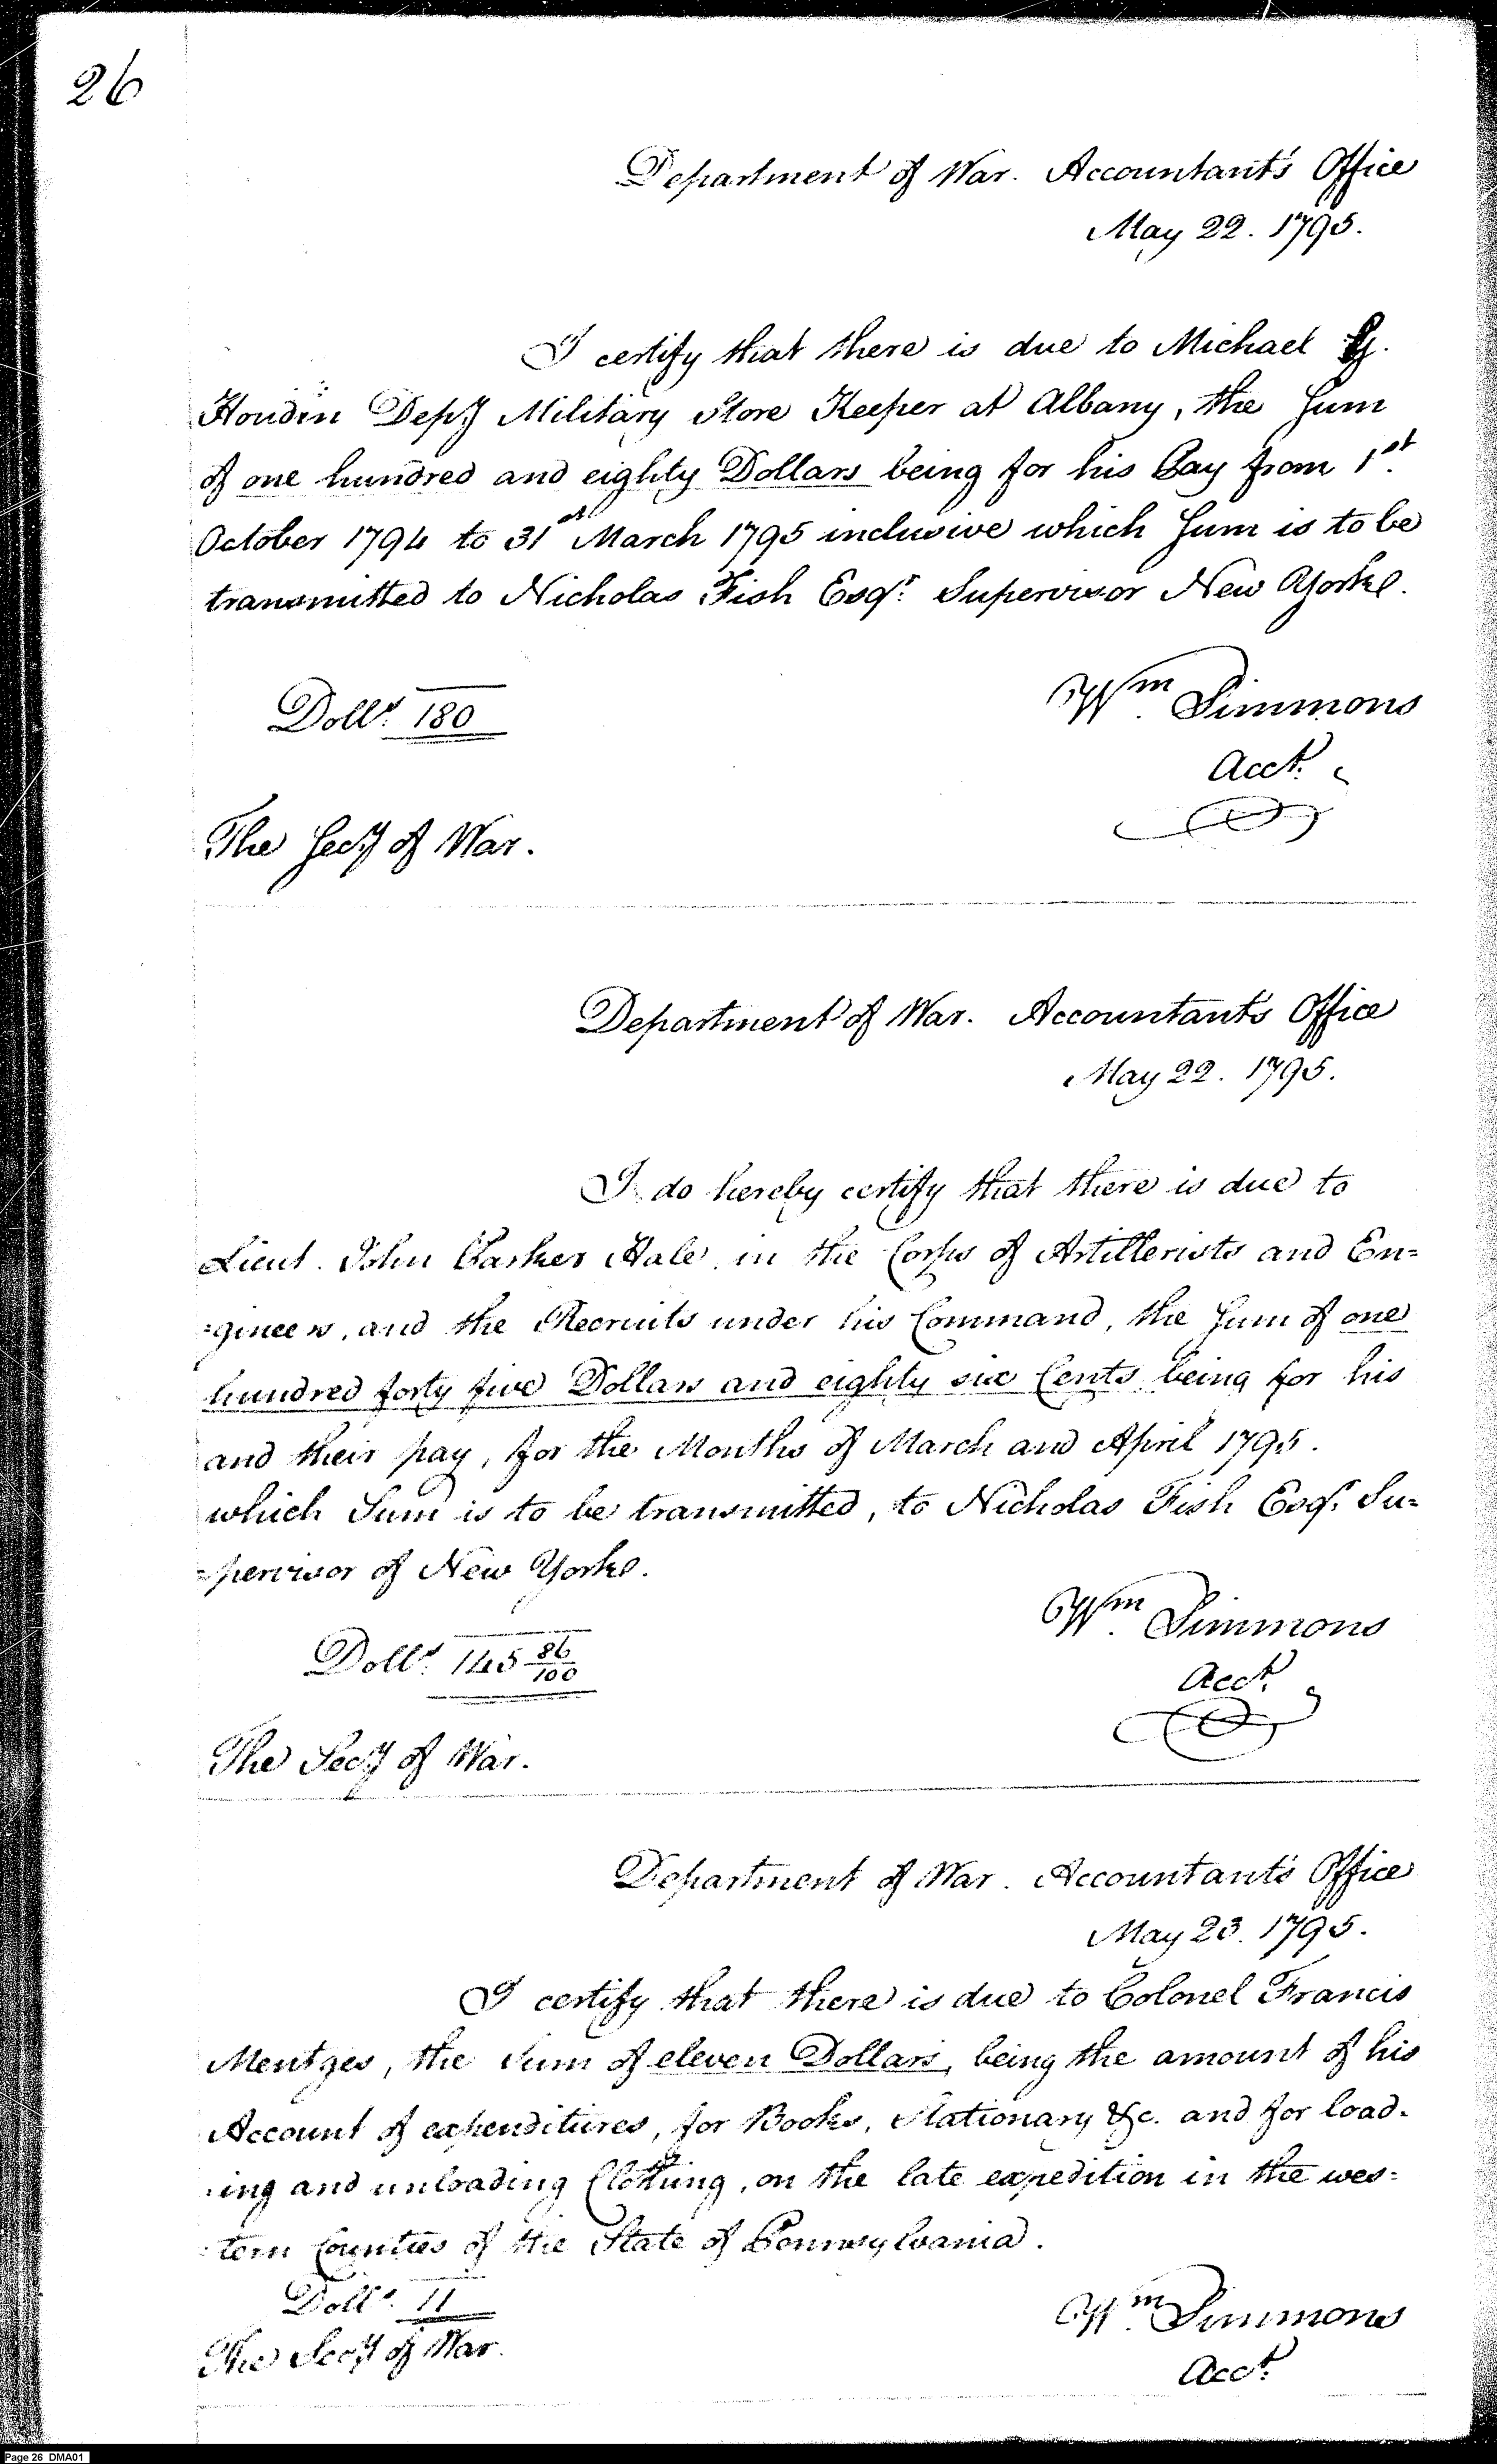 26
Department of War. Accountant's Office
May 22. 1795.
I certify that there is due to Michael G.
Houdin Depy Military Store Keeper at Albany, the Sum
of one hundred and eighty Dollars being for his Pay from 1st
October 1794 to 31st March 1795 inclusive which Sum is to be
transmitted to Nicholas Fish Esqr. Supervisor New Yorke.
Dolls. 180
Wm. Simmons
Acct.
The Secy of War.
Department of War. Accountant's Office
May 22. 1795.
I do hereby certify that there is due to
Lieut. John Parker Hale in the Corps of Artillerists and En=
=gineers, and the Recruits under his Command, the Sum of one
hundred forty five Dollars and eighty six Cents being for his
and their pay, for the Months of March and April 1795.
which Sum is to be transmitted, to Nicholas Fish Esqr. Su=
=pervisor of New Yorke.
Dolls. 145 86/100
Wm. Simmons
Acct.
The Secy of War.
Department of War. Accountant's Office
May 23. 1795.
I certify that there is due to Colonel Francis
Mentges, the Sum of eleven Dollars, being the amount of his
Account of expenditures, for Books, Stationary &c. and for load=
=ing and unloading Clothing, on the late expedition in the wes=
=tern Counties of the State of Pennsylvania.
Dolls. 11
Wm. Simmons
Acct.
The Secy of War.
Page 26 DMA01